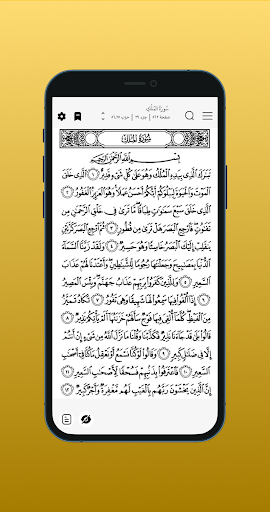 سورة المُلك
صفحة ٥٦٢ | جزء ٢٩ |
سُورَةُ المُلْكِ
بِسْمِ ٱللَّهِ ٱلرَّحْمَٰنِ ٱلرَّحِيمِ
تَبَٰرَكَ ٱلَّذِي بِيَدِهِ ٱلْمُلْكُ وَهُوَ عَلَىٰ كُلِّ شَيْءٍ قَدِيرٌ ١ ٱلَّذِي خَلَقَ
ٱلْمَوْتَ وَٱلْحَيَوٰةَ لِيَبْلُوَكُمْ أَيُّكُمْ أَحْسَنُ عَمَلًا وَهُوَ ٱلْعَزِيزُ ٱلْغَفُورُ ٢
ٱلَّذِي خَلَقَ سَبْعَ سَمَٰوَٰتٍ طِبَاقًا مَّا تَرَىٰ فِي خَلْقِ ٱلرَّحْمَٰنِ مِن
تَفَٰوُتٍ فَٱرْجِعِ ٱلْبَصَرَ هَلْ تَرَىٰ مِن فُطُورٍ ٣ ثُمَّ ٱرْجِعِ ٱلْبَصَرَ كَرَّتَيْنِ
يَنقَلِبْ إِلَيْكَ ٱلْبَصَرُ خَاسِئًا وَهُوَ حَسِيرٌ ٤ وَلَقَدْ زَيَّنَّا ٱلسَّمَآءَ
ٱلدُّنْيَا بِمَصَٰبِيحَ وَجَعَلْنَٰهَا رُجُومًا لِّلشَّيَٰطِينِ وَأَعْتَدْنَا لَهُمْ عَذَابَ
ٱلسَّعِيرِ ٥ وَلِلَّذِينَ كَفَرُوا۟ بِرَبِّهِمْ عَذَابُ جَهَنَّمَ وَبِئْسَ ٱلْمَصِيرُ
٦ إِذَآ أُلْقُوا۟ فِيهَا سَمِعُوا۟ لَهَا شَهِيقًا وَهِيَ تَفُورُ ٧ تَكَادُ تَمَيَّزُ
مِنَ ٱلْغَيْظِ كُلَّمَآ أُلْقِيَ فِيهَا فَوْجٌ سَأَلَهُمْ خَزَنَتُهَآ أَلَمْ يَأْتِكُمْ نَذِيرٌ ٨
قَالُوا۟ بَلَىٰ قَدْ جَآءَنَا نَذِيرٌ فَكَذَّبْنَا وَقُلْنَا مَا نَزَّلَ ٱللَّهُ مِن شَيْءٍ إِنْ أَنتُمْ
إِلَّا فِي ضَلَٰلٍ كَبِيرٍ ٩ وَقَالُوا۟ لَوْ كُنَّا نَسْمَعُ أَوْ نَعْقِلُ مَا كُنَّا فِيٓ أَصْحَٰبِ
ٱلسَّعِيرِ ١٠ فَٱعْتَرَفُوا۟ بِذَنۢبِهِمْ فَسُحْقًا لِّأَصْحَٰبِ ٱلسَّعِيرِ ١١
إِنَّ ٱلَّذِينَ يَخْشَوْنَ رَبَّهُم بِٱلْغَيْبِ لَهُم مَّغْفِرَةٌ وَأَجْرٌ كَبِيرٌ ١٢